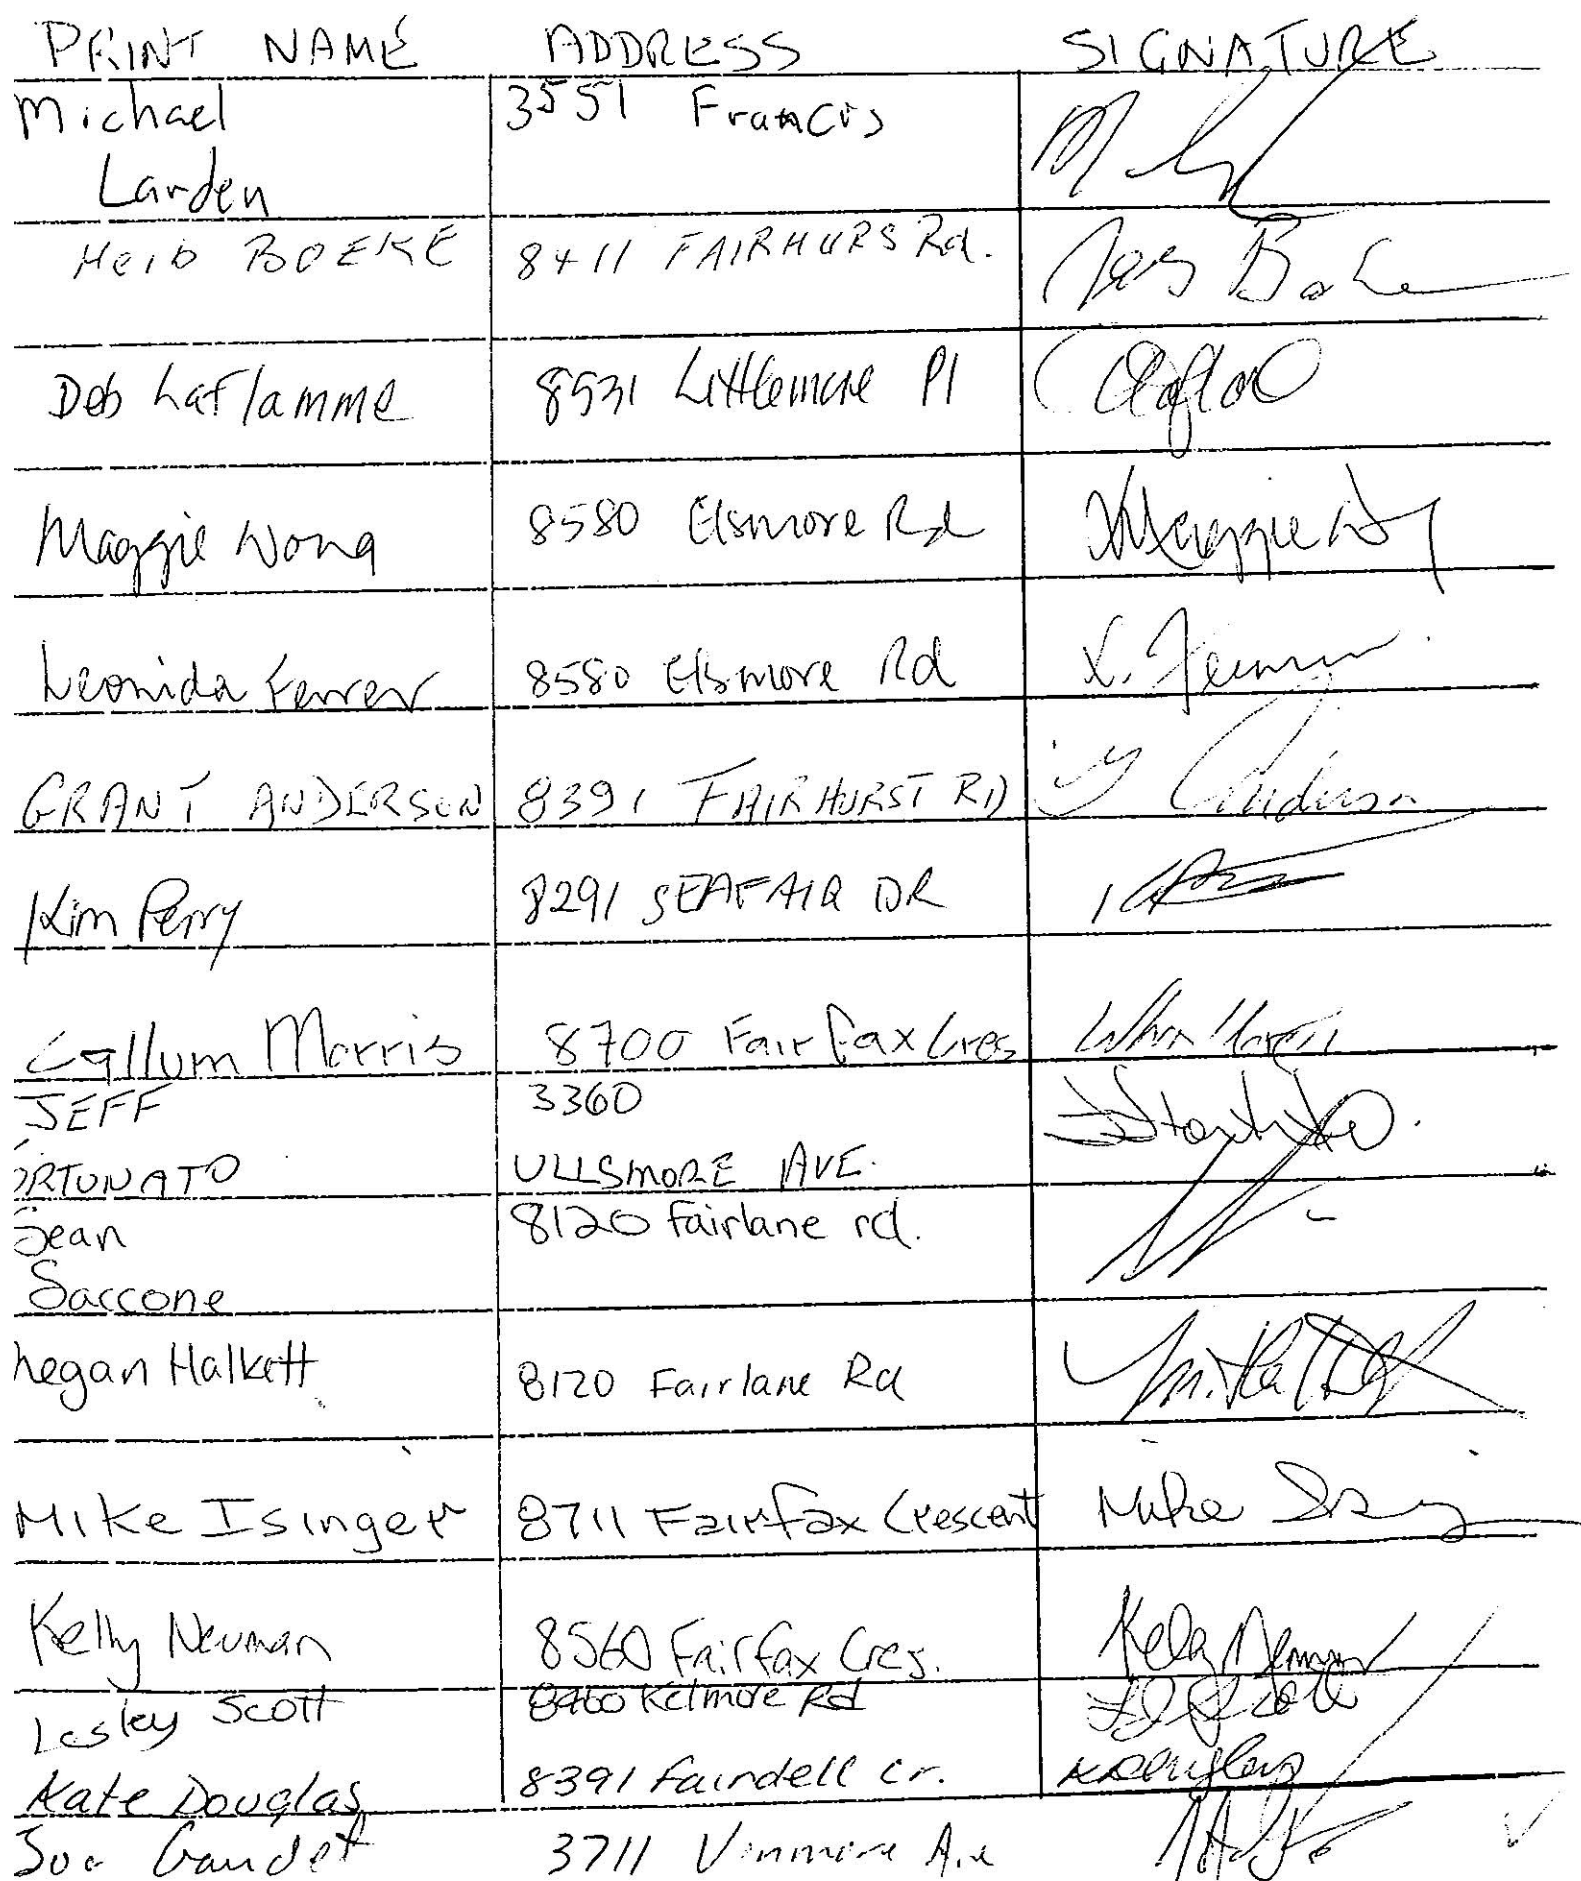 PRINT NAME ADDRESS SIGNATURE
Michael 3551 Francis
Larden
Herb BOEKE 8411 FAIRHURS Rd.
Deb Laflamme 8931 Littlemore Pl
Maggie Wong 8580 Elsmore Rd
Leonida Ferrer 8580 Elsmore Rd
GRANT ANDERSON 8391 FAIRHURST RD G Anderson
Kim Perry 8291 SEAFAIR DR
Callum Morris 8700 Fairfax Cres
JEFF 3360
ORTUNATO ULLSMORE AVE.
Sean 8120 fairlane rd.
Saccone
megan Halkett 8120 Fairlane Rd
MIKE Isinger 8711 Fairfax Crescent Mike
Kelly Neuman 8560 Fairfax Cres. Kelly Neuman
Lesley Scott 8460 Kelmore Rd
Kate Douglas 8391 fairdell cr.
Gaudet 3711 Ave